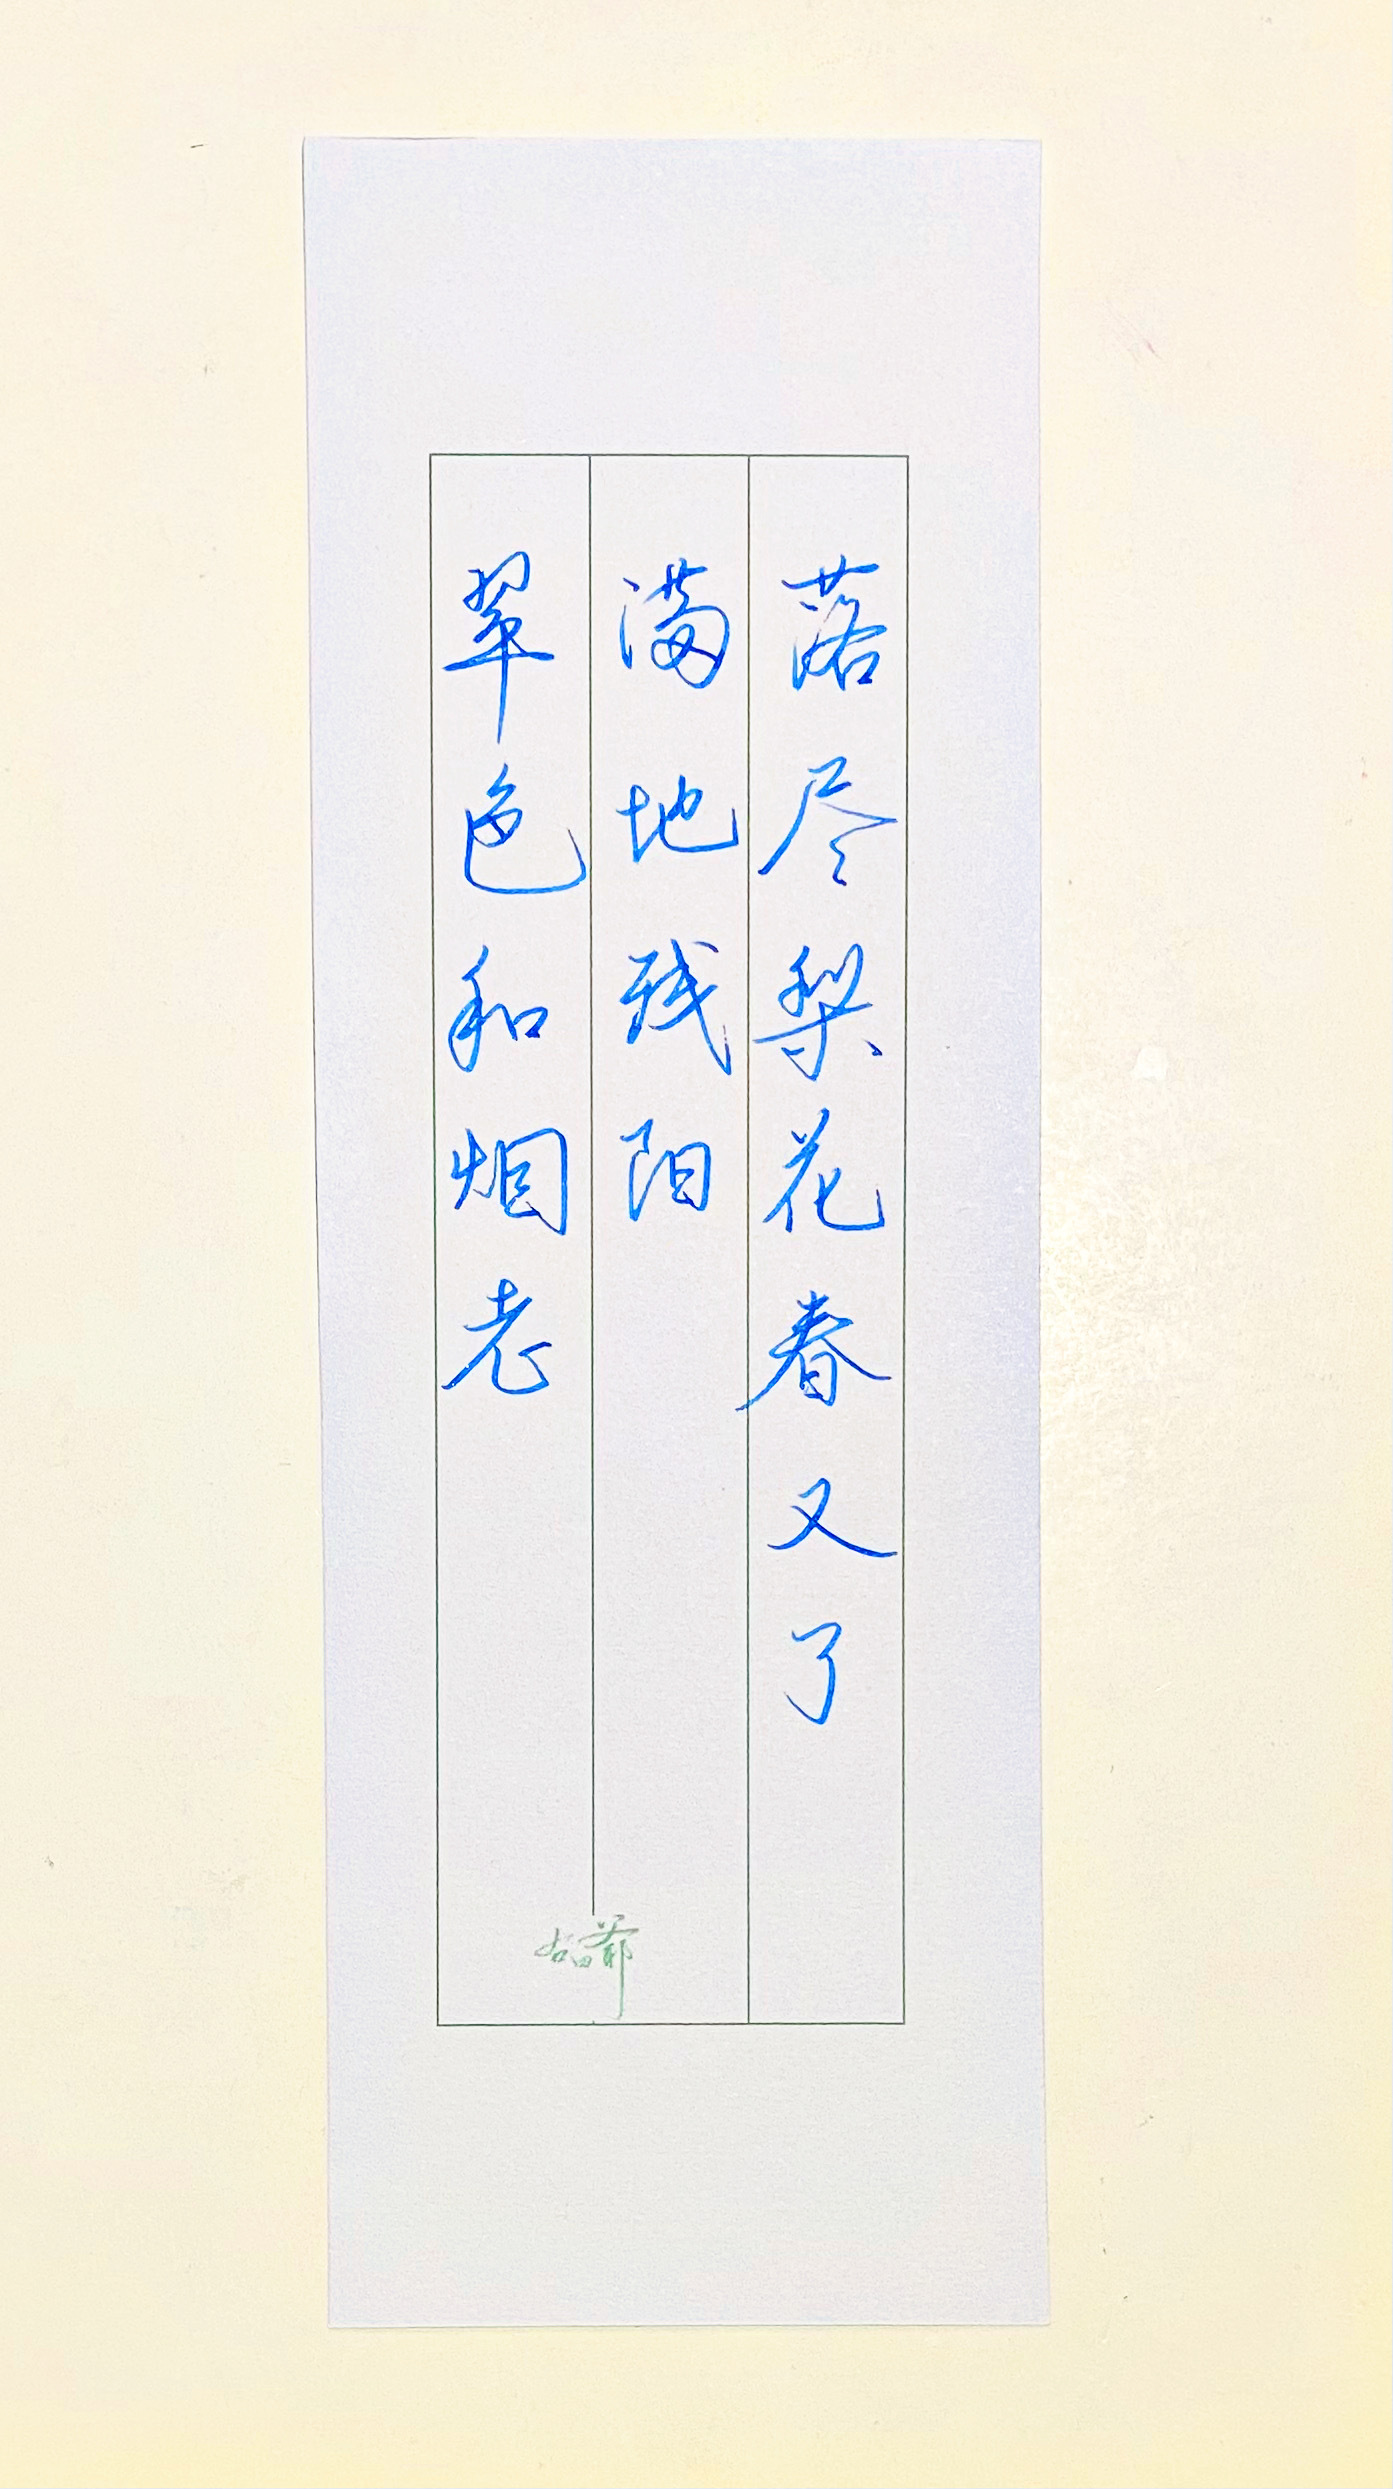 落尽梨花春又了
满地残阳
翠色和烟老